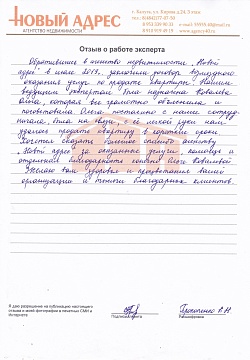 НОВЫЙ АДРЕС
АГЕНТСТВО НЕДВИЖИМОСТИ
Отзыв о работе эксперта
Обратившись в агентство недвижимости „Новый
адрес" в июле 2019, заключили договор
оказания услуг по продаже квартиры. Нашим
ведущим экспертом была назначена Ковалева
Ольга, которая все грамотно объяснила и
посоветовала. Ольга постоянно с нами
была на связи, с её легкой руки нам
удалось продать квартиру в короткие сроки.
Хочется сказать большое спасибо агентству
„Новый адрес" за оказанные услуги, помощь и
отдельная благодарность Ольге Ковалевой
Желаю вам здоровья и процветания вашей
организации и только благодарных клиентов.
Я даю разрешение на публикацию настоящего
отзыва и моей фотографии в печатных СМИ и
Интернете
Подпись
Расшифровка